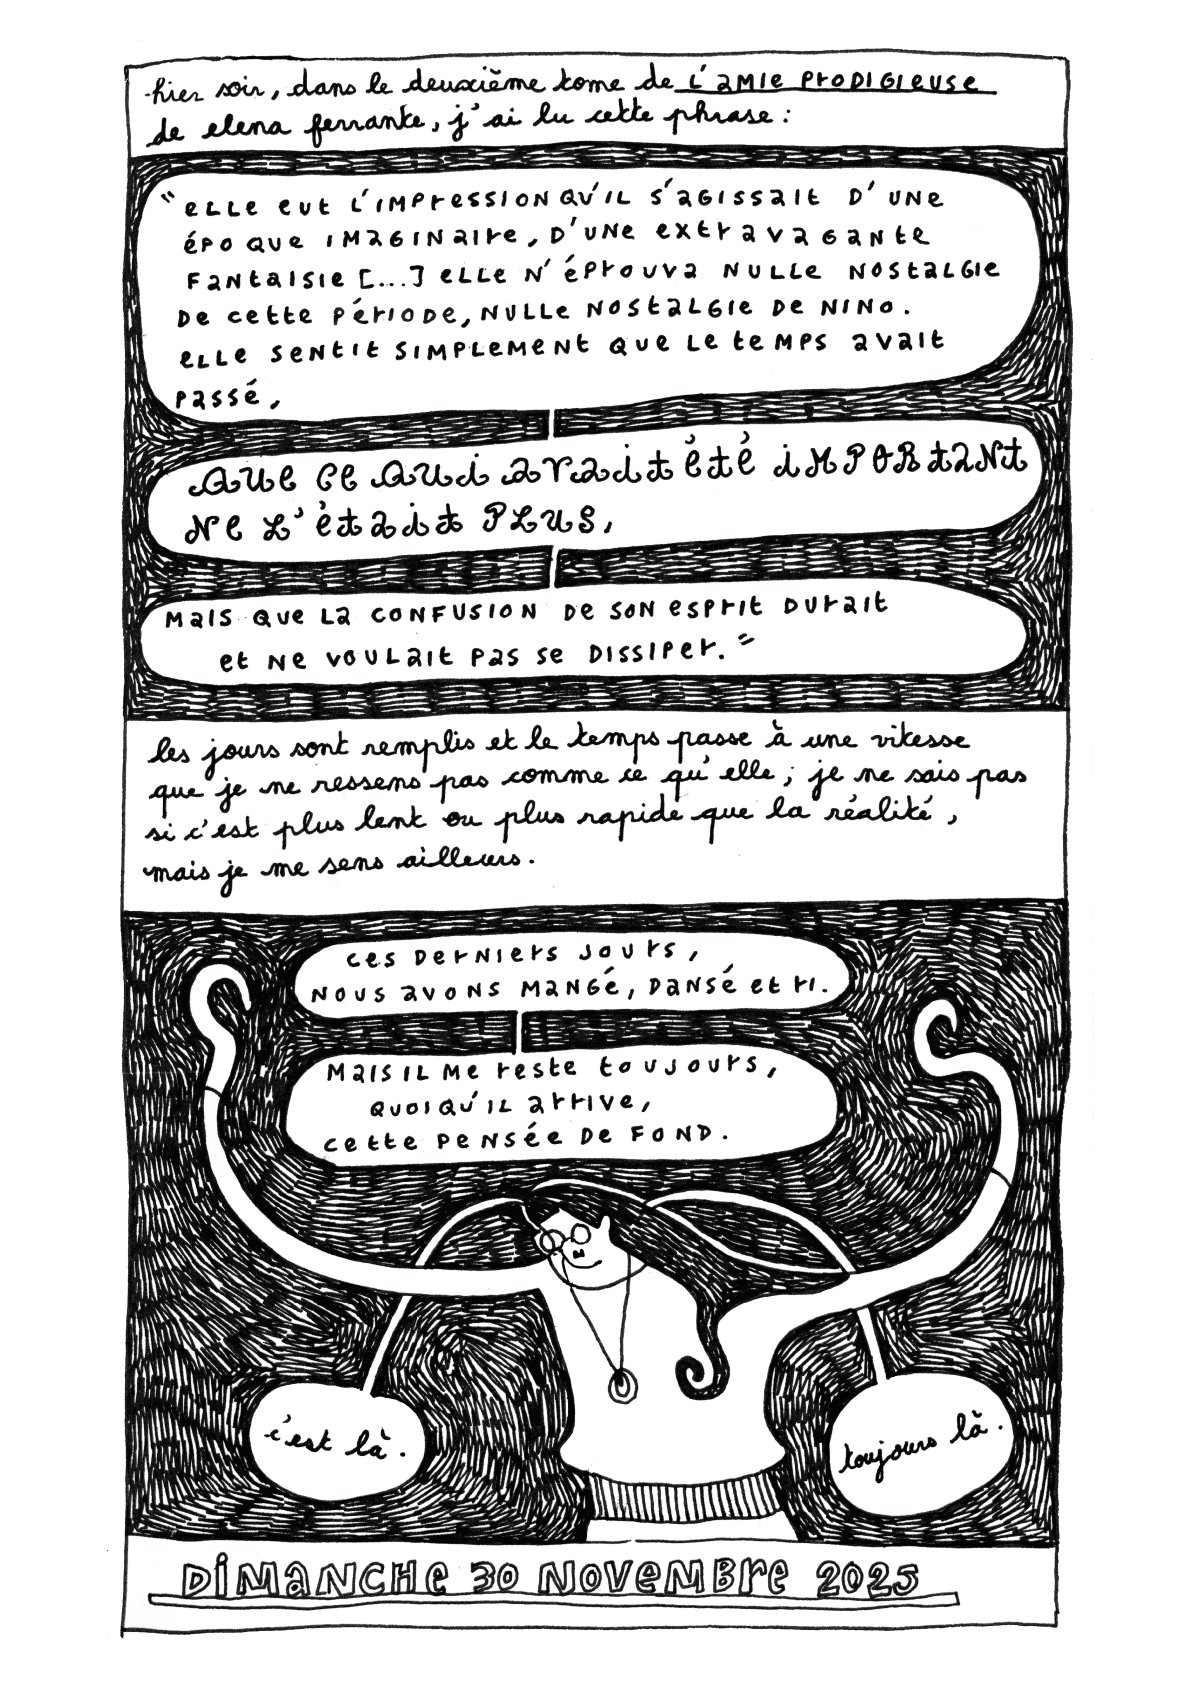 hier soir, dans le deuxième tome de L'aMIE PrODIGIEUSE
de elena ferrante, j'ai lu cette phrase :
"eLLe eut L'IMPressION QU'IL S'aGISSaIt D'UNe
éPOQUe IMaGINaIre, D'UNe extravaGaNte
FaNtaISIe [...] eLLe N'éPrOUVa NULLe NOStaLGIe
De cette PérIODe, NULLe NOStaLGIe De NINO.
eLLe SeNtIt SIMPLeMeNt QUe Le teMPS avaIt
PaSSé,
QUe Ce QUi avait été iMPORtaNt
Ne L'était PLUS,
MaIS QUe La CONFUSION De SON eSPrIt DUraIt
et Ne VOULaIt PaS Se DISSIPer."
les jours sont remplis et le temps passe à une vitesse
que je ne ressens pas comme ce qu'elle ; je ne sais pas
si c'est plus lent ou plus rapide que la réalité,
mais je me sens ailleurs.
ces DerNIers JOUrS,
NOUS avONS MaNGé, DaNSé et rI.
MaIS IL Me reste tOUJOUrS,
QUOIQU'IL arrIVe,
cette PeNSée De FOND.
c'est là.
toujours là.
DiMaNCHe 30 NOVeMBre 2025